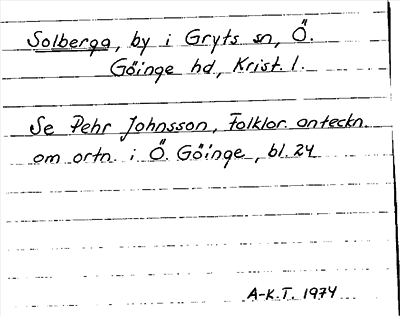 Solberga, by i Gryts sn, Ö.
Göinge hd, Krist. l.
Se Pehr Johnsson, Folklor. anteckn.
om ortn. i Ö. Göinge, bl. 24
A-K.T. 1974